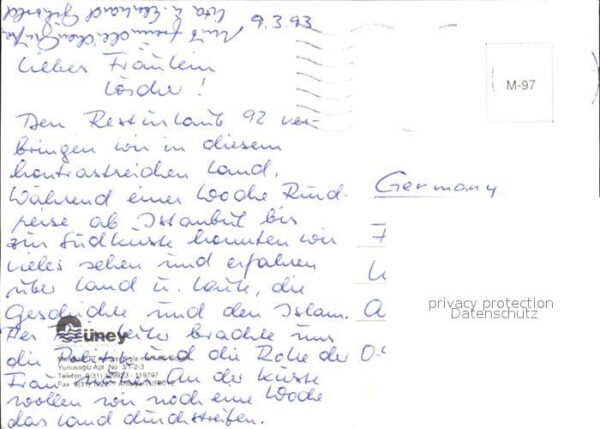 9.3.93
Liebes Fräulein
Löscher!
Den Resturlaub 92 ver-
bringen wir in diesem
kontrastreichen Land.
Während einer Woche Rund-
reise ab Istanbul bis
zur Südküste konnten wir
vieles sehen und erfahren
über Land u. Leute, die
Geschichte und den Islam.
Der Reiseleiter brachte uns
die Politik und die Rolle der
Frau näher. An der Küste
wollen wir noch eine Woche
das Land durchstreifen.
Mit freundlichen Grüßen
Rita u. Eberhard
Germany
M-97
privacy protection
Datenschutz
Güney
Yunusoğlu Apt. No: 3/1-2-3